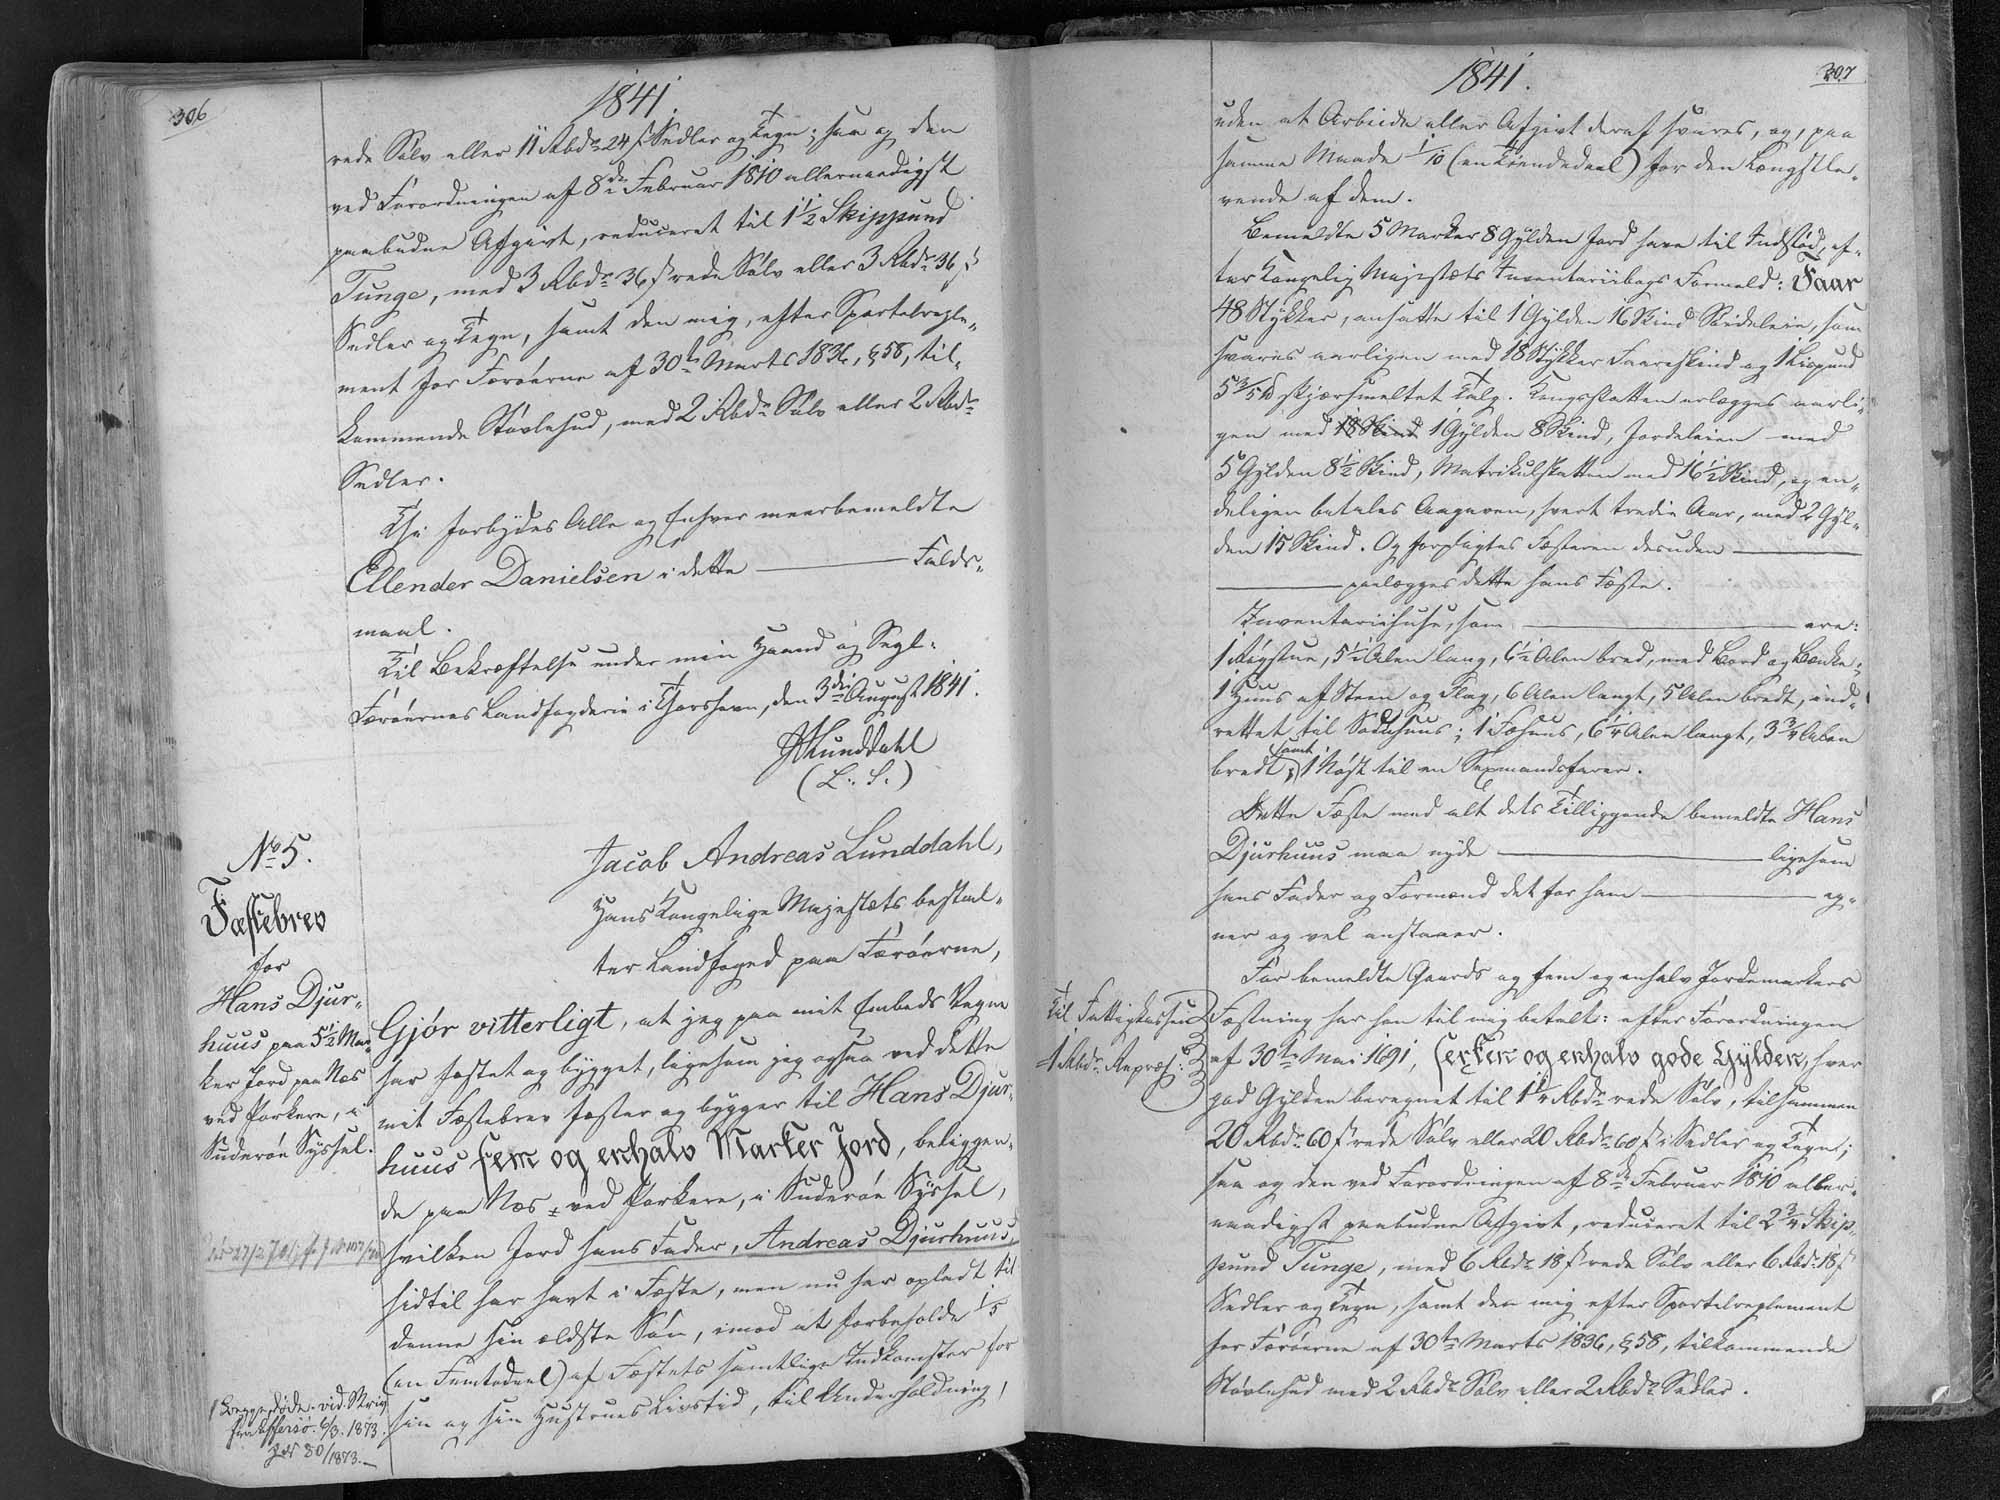 306
1841.
rede Sølv eller 11 Rbdr 24 s Sedler og Tegn; saa og den
ved Forordningen af 8de Februar 1810 allernaadigst
paabudne Afgivt, reduceret til 1 1/2 Skippund
Tunge, med 3 Rbdr 36 s rede Sølv eller 3 Rbdr 36 s
Sedler og Tegn, samt den mig, efter Sportelregle-
ment for Færøerne af 30te Marts 1836, § 58, til-
kommende Støvlehud, med 2 Rbdr Sølv eller 2 Rbdr
Sedler.
Thi forbydes Alle og Enhver meerbemeldte
Ellender Danielsen i dette ——— Falds-
maal.
Til Bekræftelse under min Haand og Segl.
Færøernes Landfogderie i Thorshavn, den 3die August 1841.
JALunddahl
(L. S.)
No 5.
Fæstebrev
for
Hans Djur-
huus paa 5 1/2 Mar-
ker Jord paa Næs
ved Porkere, i
Suderøe Syssel.
Jacob Andreas Lunddahl,
Hans Kongelige Majestæts bestal-
ter Landfoged paa Færøerne,
Gjør vitterligt, at jeg paa mit Embeds Vegne
har fæstet og bygget, ligesom jeg ogsaa ved dette
mit Fæstebrev fæster og bygger til Hans Djur-
huus fem og enhalv Marker Jord, beliggen-
de paa Næs ved Porkere, i Suderøe Syssel,
hvilken Jord hans Fader, Andreas Djurhuus,
hidtil har havt i Fæste, men nu har opladt til
denne sin ældste Søn, imod at forbeholde 1/5
(en Femtedeel) af Fæstets samtlige Indkomster for
sin og sin Hustrues Livstid, til Underholdning,
Begge døde. vid. Skriv.
6/3. 1873.
80/1873.
307
1841.
uden at Arbeide eller Afgivt deraf svares, og, paa
samme Maade 1/10 (en Tiendedeel) for den Længstle-
vende af dem.
Bemeldte 5 Marker 8 Gylden Jord have til Indstød, ef-
ter Kongelig Majestæts Inventariibogs Formeld: Faar
48 Stykker, ansatte til 1 Gylden 16 Skind Sædeleie, som
svares aarligen med 18 Stykker Faareskind og 1 Lispund
5 3/5 lb skjærsmeltet Talg. Kongsskatten erlægges aarli-
gen med 18 Skind 1 Gylden 8 Skind, Jordeleien med
5 Gylden 8 1/2 Skind, Matrikulskatten med 16 1/2 Skind, og en-
deligen betales Aagaven, hvert tredie Aar, med 2 Gyl-
den 15 Skind. Og forpligtes Fæsteren desuden ———
——— paalægges dette hans Fæste.
Inventariihuse, som ——— ere:
1 Røgstue, 5 1/2 Alen lang, 6 1/2 Alen bred, med Bord og Bænke;
1 Huus af Steen og Flag, 6 Alen langt, 5 Alen bredt, ind-
rettet til Sodehuus; 1 Fæhuus, 6 1/4 Alen langt, 3 3/4 Alen
bredt; samt 1 Nøst til en Sexmandsfarer.
Dette Fæste med alt dets Tilliggende bemeldte Hans
Djurhuus maa nyde ——— ligesom
hans Fader og Formænd det før ham ——— eg-
ner og vel anstaaer.
For bemeldte Gaards og fem og enhalv Jordemarkers
Fæstning har han til mig betalt: efter Forordningen
af 30te Mai 1691, sexten og enhalv gode Gylden, hver
god Gylden beregnet til 1 1/4 Rbdr rede Sølv, tilsammen
20 Rbdr. 60 s rede Sølv eller 20 Rbdr. 60 s i Sedler og Tegn;
saa og den ved Forordningen af 8de Februar 1810 aller-
naadigst paabudne Afgivt, reduceret til 2 3/4 Skip-
pund Tunge, med 6 Rbdr 18 s rede Sølv eller 6 Rbdr. 18 s
Sedler og Tegn, samt den mig efter Sportelreglement
for Færøerne af 30te Marts 1836, § 58, tilkommende
Støvlehud med 2 Rbdr Sølv eller 2 Rbdr Sedler.
Til Fattigkassen
1 Rbdr. Repræs: